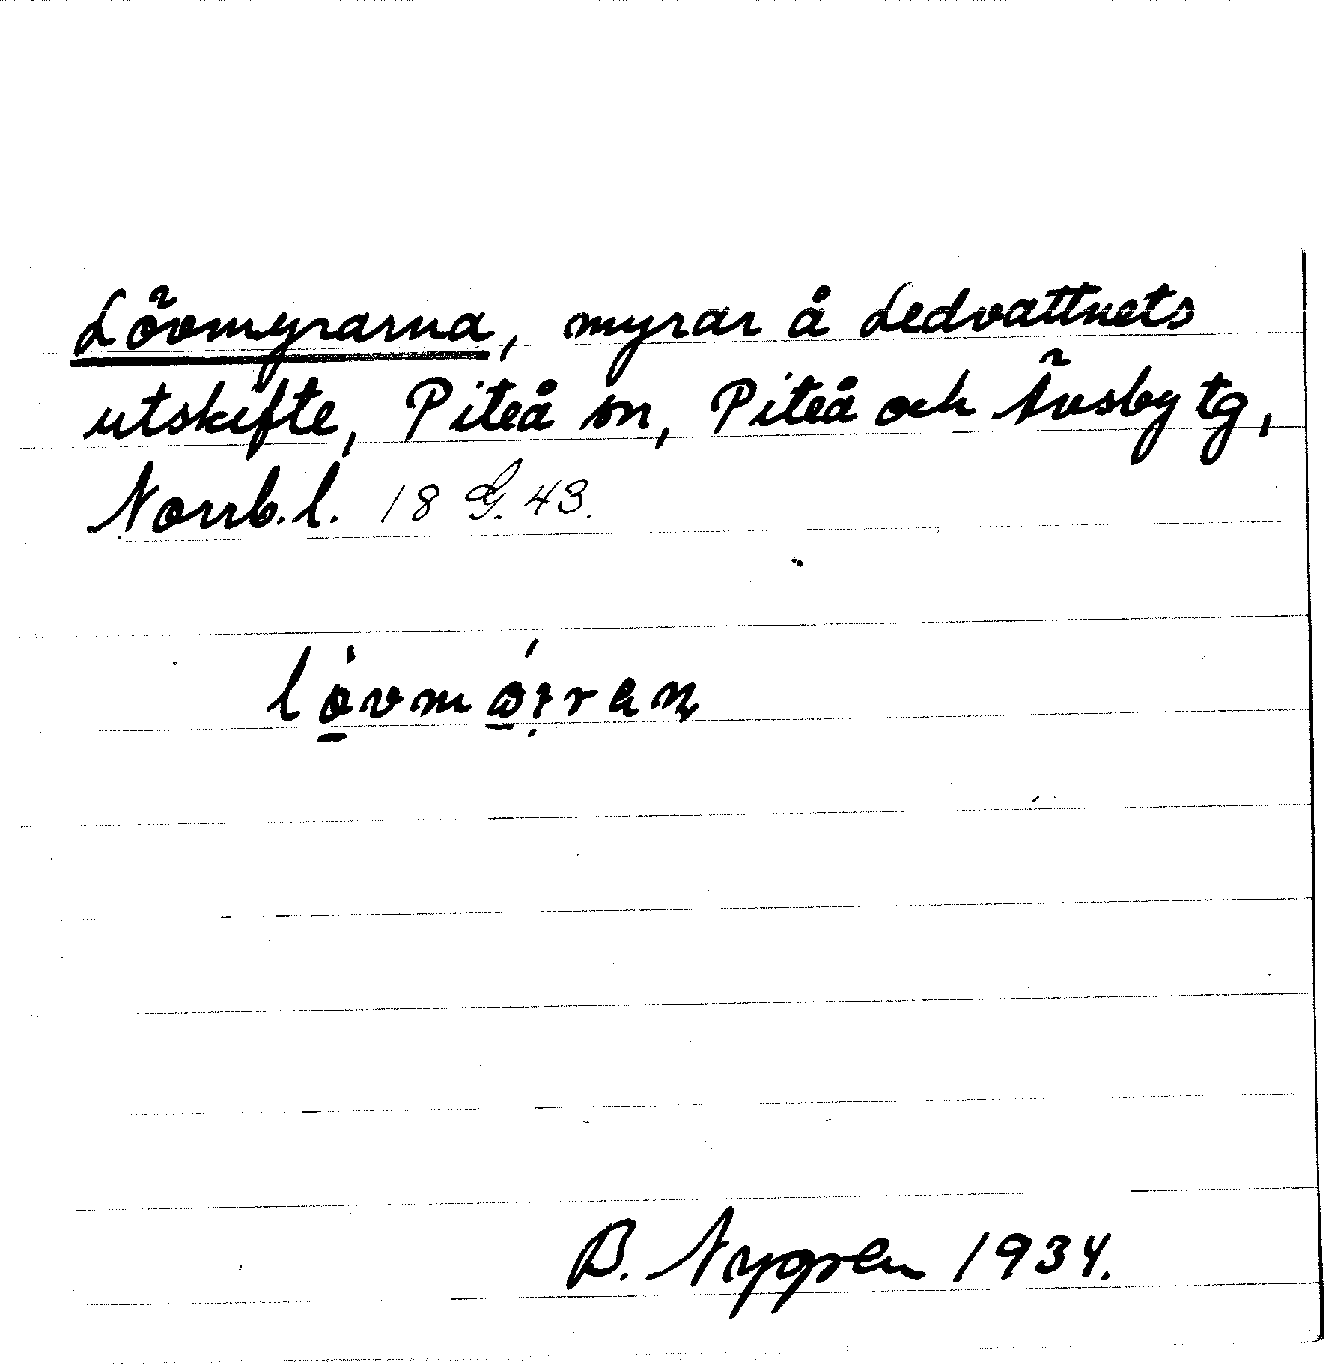 Lövmyrarna, myrar å Ledvattnets
utskifte, Piteå sn, Piteå och Älvsby tg,
Norrb. l. 18 G. 43.
B. Nygren 1934.